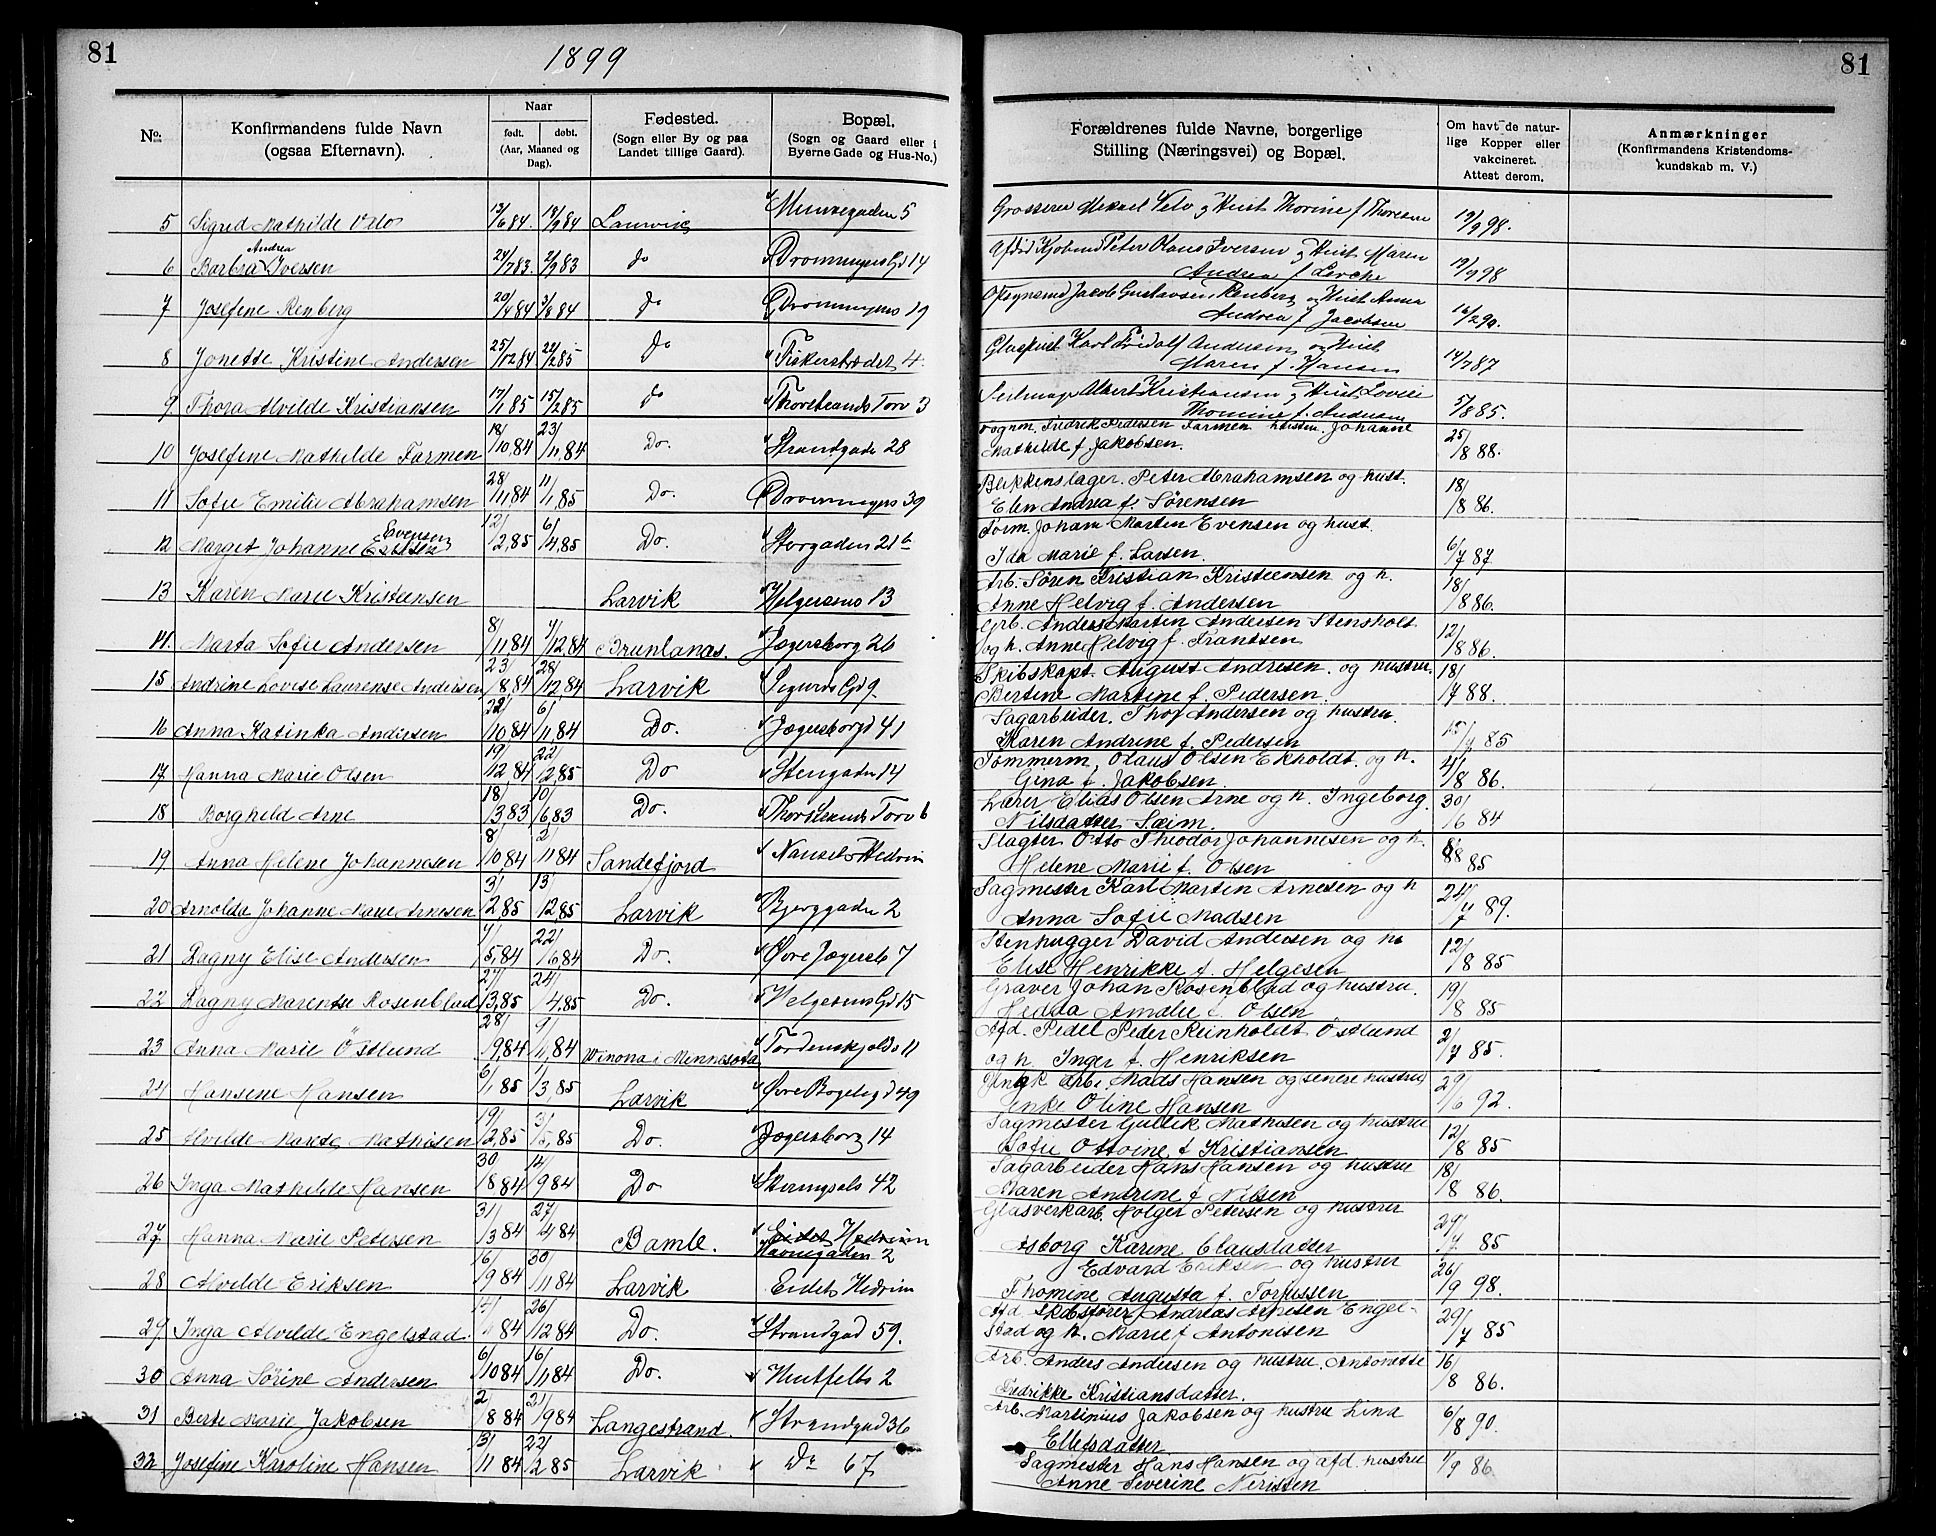 81
1899
81
No.
Konfirmandens fulde Navn
(ogsaa Efternavn).
Naar
født. døbt.
(Aar, Maaned og
Dag).
Fødested.
(Sogn eller By og paa
Landet tillige Gaard).
Bopæl.
(Sogn og Gaard eller i
Byerne Gade og Hus-No.)
Forældrenes fulde Navne, borgerlige
Stilling (Næringsvei) og Bopæl.
Om havt de natur-
lige Kopper eller
vakcineret.
Attest derom.
Anmærkninger
(Konfirmandens Kristendoms-
kundskab m. V.)
5 Sigrid Mathilde 84 84 Laurvig 5
19/9 98.
6 Barbra Andrea Iversen 83. 2/9 83 do 14 Peter Olaus Iversen Maren
Andrea f. Lerche 19/9 98
7 Josefine Renberg 84 84 do 19 Jacob Gustavsen Renberg og Anna
Andrea f. Jacobsen 16/2 90.
8 Jonette Kristine Andersen 25/12 84 22/2 85 do Fiskerstrædet 4. Karl Andersen og
Maren f. Hansen 14/7 87
9 Thora Alvilde Kristiansen 17/1 85 15/2 85 do Torv 3 Albert Kristiansen Lovise
Thomine f. Andersen 5/8 85.
10 Josefine Mathilde Farmen 18/10,84 23/11,84 Do. Strandgade 28 Fredrik Pedersen Farmen Johanne
Mathilde f. Jakobsen. 25/8 88.
11 Sofie Emilie Abrahamsen 28/11,84 11/1,85 Do. 39 Blikkenslager. Peter Abrahamsen og hust.
Elen Andrea f. Sørensen 18/8 86.
12 Marget Johanne Evensen 12/2,85 6/4,85 Do. Storgaden 21b Johan Martin Evensen og hust.
Ida Marie f. Larsen. 6/7 87
13 Karen Marie Kristensen Larvik 13 Arb. Søren Kristian Kristensen og h.
Anne Helvig f. Andersen 18/8 86.
14. Marta Sofie Andersen 8/11,84 7/12,84 Brunlanæs. Jegersborg 26 Martin Andersen Stensholt
og h. Anne Helvig f. Frantsen 12/8 86.
15 Andrine Lovise Laurense Andersen 23/8,84 28/12,84 Larvik Sigurds Gd 9. Skibskapt. August Andresen. og hustru
Bertine Martine f. Pedersen. 18/7 88.
16 Anna Katinka Andersen 22/10 84 6/11,84 Do. Jegersborgd 41 Sagarbeider. Thor Andersen og hustru.
Karen Andrine f. Pedersen 15/7 85
17 Hanna Marie Olsen 19/12,84 22/2,85 Do Stengaden 14 Tømmerm, Olaus Olsen Ekholdt. og h.
Gina f. Jakobsen 4/8 86.
18 Borghild Arne 18/3 83 10/6,83 Do. Torv 6 Lærer Elias Olsen Arne og h. Ingeborg
Nilsdatter Sæim. 30/6 84
19 Anna Helene Johannesen 8/10 84 2/11 84 Sandefjord Nanset Hedrum Slagter Otto Theodor Johannesen og h.
Helene Marie f. Olsen 85
20 Arnolda Johanne Marie Arnesen 3/2,85 13/12,85 Larvik Bjerggaden 2 Sagmester Karl Martin Arnesen og h
Anna Sofie Madsen 24/7 89.
21 Dagny Elise Andersen 7/5,84 22/6 84 Do. Øvre Jegersb 7 Stenhugger David Andersen og h.
Elise Henrikke f. Helgesen 12/8 85
22 Dagny Marentse Rosenblad 27/3,85 24/4.85 Do. Helgesens Gd 15 Graver Johan Rosenblad og hustru.
Hedda Amalie f. Olsen 19/8 85
23 Anna Marie Östlund 28/9,84 9/11,84 Winona i Minnesota Tordenskjolds 11 Afd. Pedel Peder Reinholdt Östlund
og h. Inger f. Henriksen 2/7 85.
24 Hansene Hansen 6/1,85 1/3,85 Larvik Øvre Bøgeligd 49 Mads Hansen og senere hustru
Oline Hansen 29/6 92.
25 Alvilde Marete Mathisen 19/2,85 3/5,85 Do. Jegersborg 14 Sagmester Gullik Mathisen og hustru
Sofie Ottoine f. Kristiansen 12/8 85
26 Inga Mathilde Hansen 30/8 84 14/9 84 Do 42 Sagarbeider Hans Hansen og hustru
Maren Andrine f. Nilsen 18/8 86.
27 Hanna Marie Petersen 31/3 84 27/4 84 Bamle. Eidet Hedrum
Havnegaden 2 Glasverkarb. Holger Petersen og hustru
Asborg Karine Clausdatter 29/7 85
28 Alvilde Eriksen 16/9 84 30/11 84 Larvik Eidet Hedrum Edvard Eriksen og hustru
Thomine Augusta f. Torjussen 26/9 98.
29 Inga Alvilde Engelstad. 84 26/12 84 Do. Strandgad 59. Afd. Skibsfører Andreas Arnesen Engel-
stad og h. Marie f Antonisen 29/7 85
30 Anna Sörine Andersen 6/10 84 16/11,84 Do. Huitfelts 2 Arb. Anders Andersen og hustru. Antonette
Fredrikke Kristiansdatter. 16/8 86.
31 Berte Marie Jakobsen 2/8 84 21/9 84 Langestrand. Strandgad 36 Arb. Martinius Jakobsen og hustru Lina
Ellefsdatter 6/8 90.
32 Josefine Karoline Hansen 13/11 84 22/2 85 Larvik Do 67 Sagmester Hans Hansen og afd. hustru
Anne Severine Neristen 1/9 86.